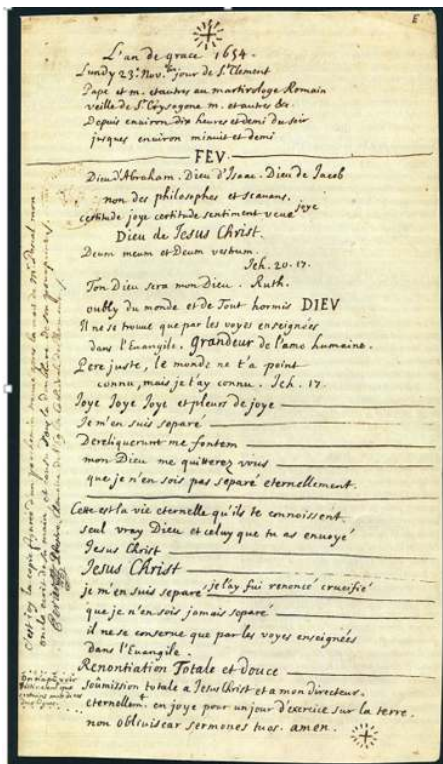 E
L'an de grace 1654.
Lundy 23e. Nov.bre jour de St. Clement
Pape et m. et autres au martirologe Romain
veille de St. Crysogone m. et autres &c.
Depuis environ dix heures et demi du soir
jusques environ minuit et demi
FEV.
Dieu d'Abraham. Dieu d'Isaac. Dieu de Jacob
non des philosophes et scavans.
certitude joye certitude sentiment veue joye
Dieu de Jesus Christ.
Deum meum et Deum vestrum.
Jeh. 20. 17.
Ton Dieu sera mon Dieu. Ruth.
oubly du monde et de Tout hormis DIEV
Il ne se trouve que par les voyes enseignées
dans l'Euangile. grandeur de l'ame humaine.
Pere juste, le monde ne t'a point
connu, mais je t'ay connu. Jeh. 17.
Joye Joye Joye et pleurs de joye
Je m'en suis separé
Dereliquerunt me fontem
mon Dieu me quitterez vous
que je n'en sois pas separé eternellement.
Cette est la vie eternelle qu'ils te connoissent
seul vray Dieu et celuy que tu as envoyé
Jesus Christ
Jesus Christ
je m'en suis separé je l'ay fui renoncé crucifié
que je n'en sois jamais separé
il ne se conserve que par les voyes enseignées
dans l'Euangile.
Renontiation Totale et douce
soûmission totale a Jesus Christ et a mon directeur.
eternellemt. en joye pour un jour d'exercice sur la terre.
non obliviscar sermones tuos. amen.